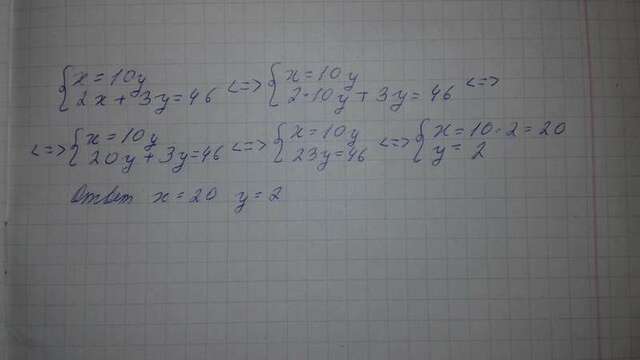 { x = 10y
{ 2x + 3y = 46 <=> { x = 10y
{ 2·10y + 3y = 46 <=>
<=> { x = 10y
{ 20y + 3y = 46 <=> { x = 10y
{ 23y = 46 <=> { x = 10·2 = 20
{ y = 2
Ответ x = 20 y = 2